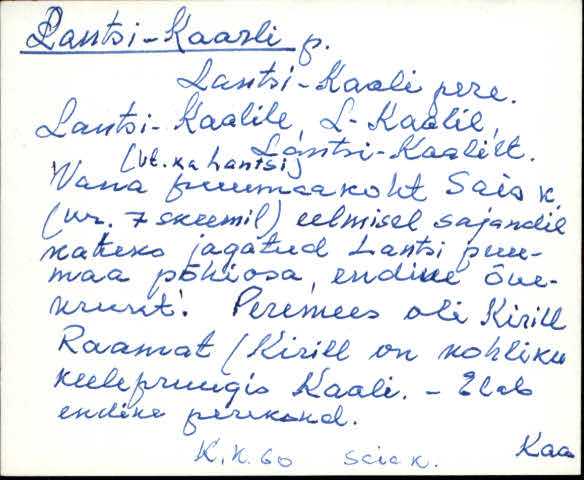 Lantsi-Kaarli p.
Lantsi-Kaali pere.
Lantsi-Kaalile, L-Kaalil,
Lantsi-Kaalilt.
(vt. ka Lantsi)
Vana puumaakoht Sais k.
(vr. 7 skeemil) eelmisel sajandil
kaheks jagatud Lantsi puu-
maa põhiosa, endine õue-
kruut. Peremees oli Kirill
Raamat (Kirill on kohliku
keelepruugis Kaali. - Elab
endine perekond.
K.K. 60 Sais k. Kaa